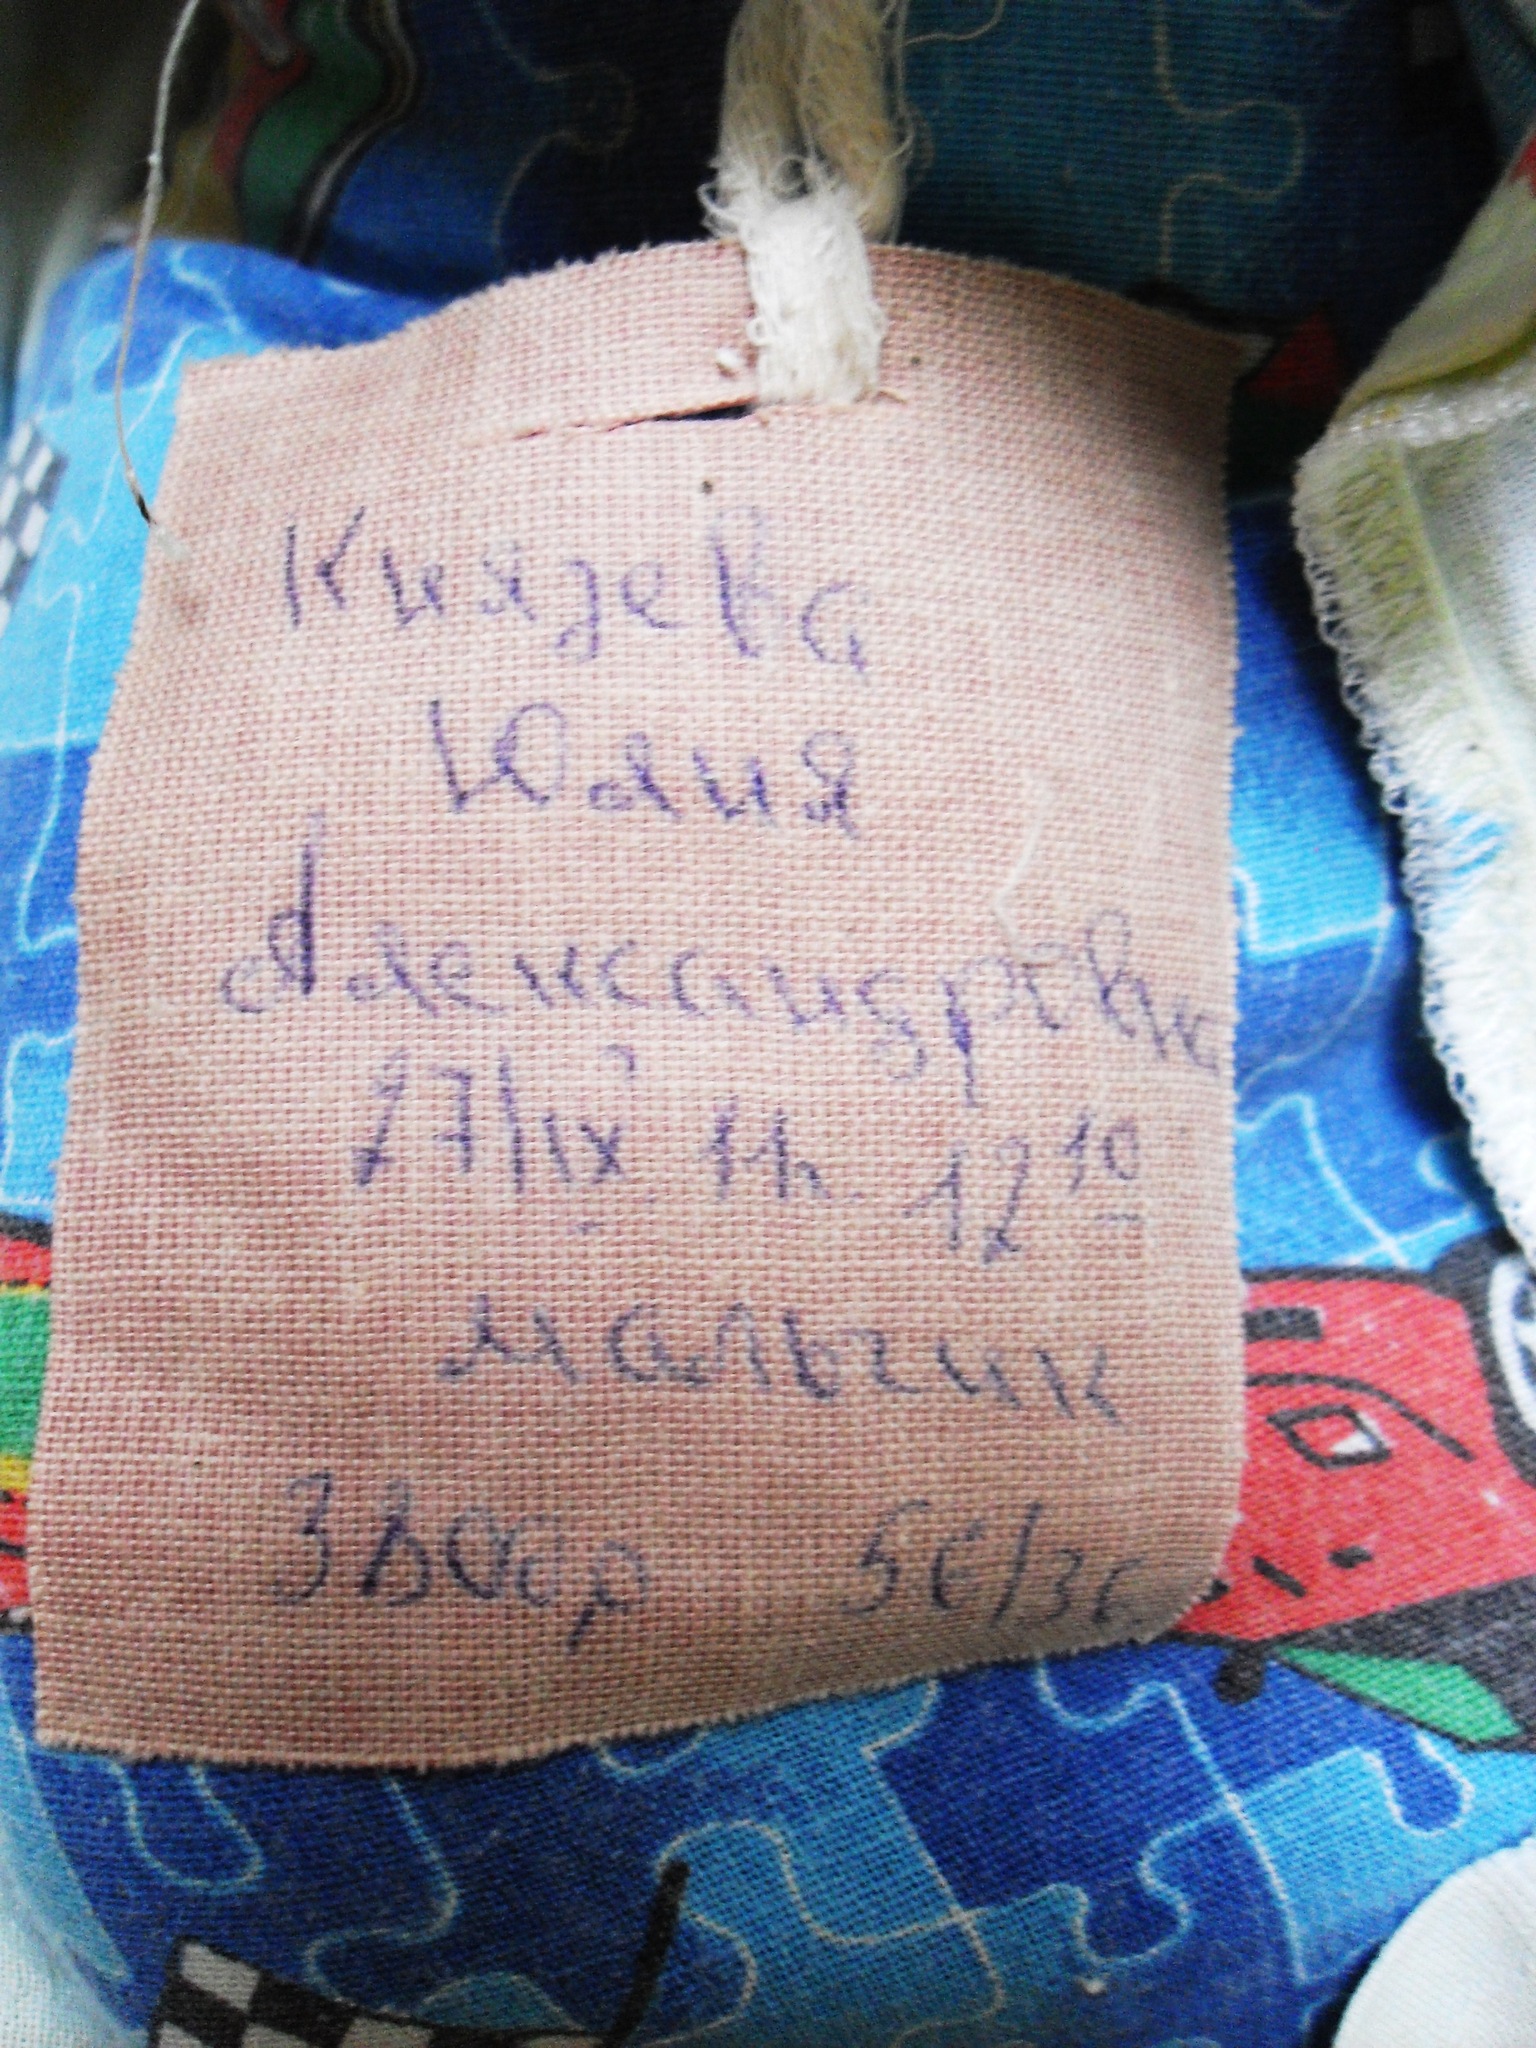 Князева
Юлия
Александровна
27/IX 11г. 12 10
мальчик
3800гр 56/36